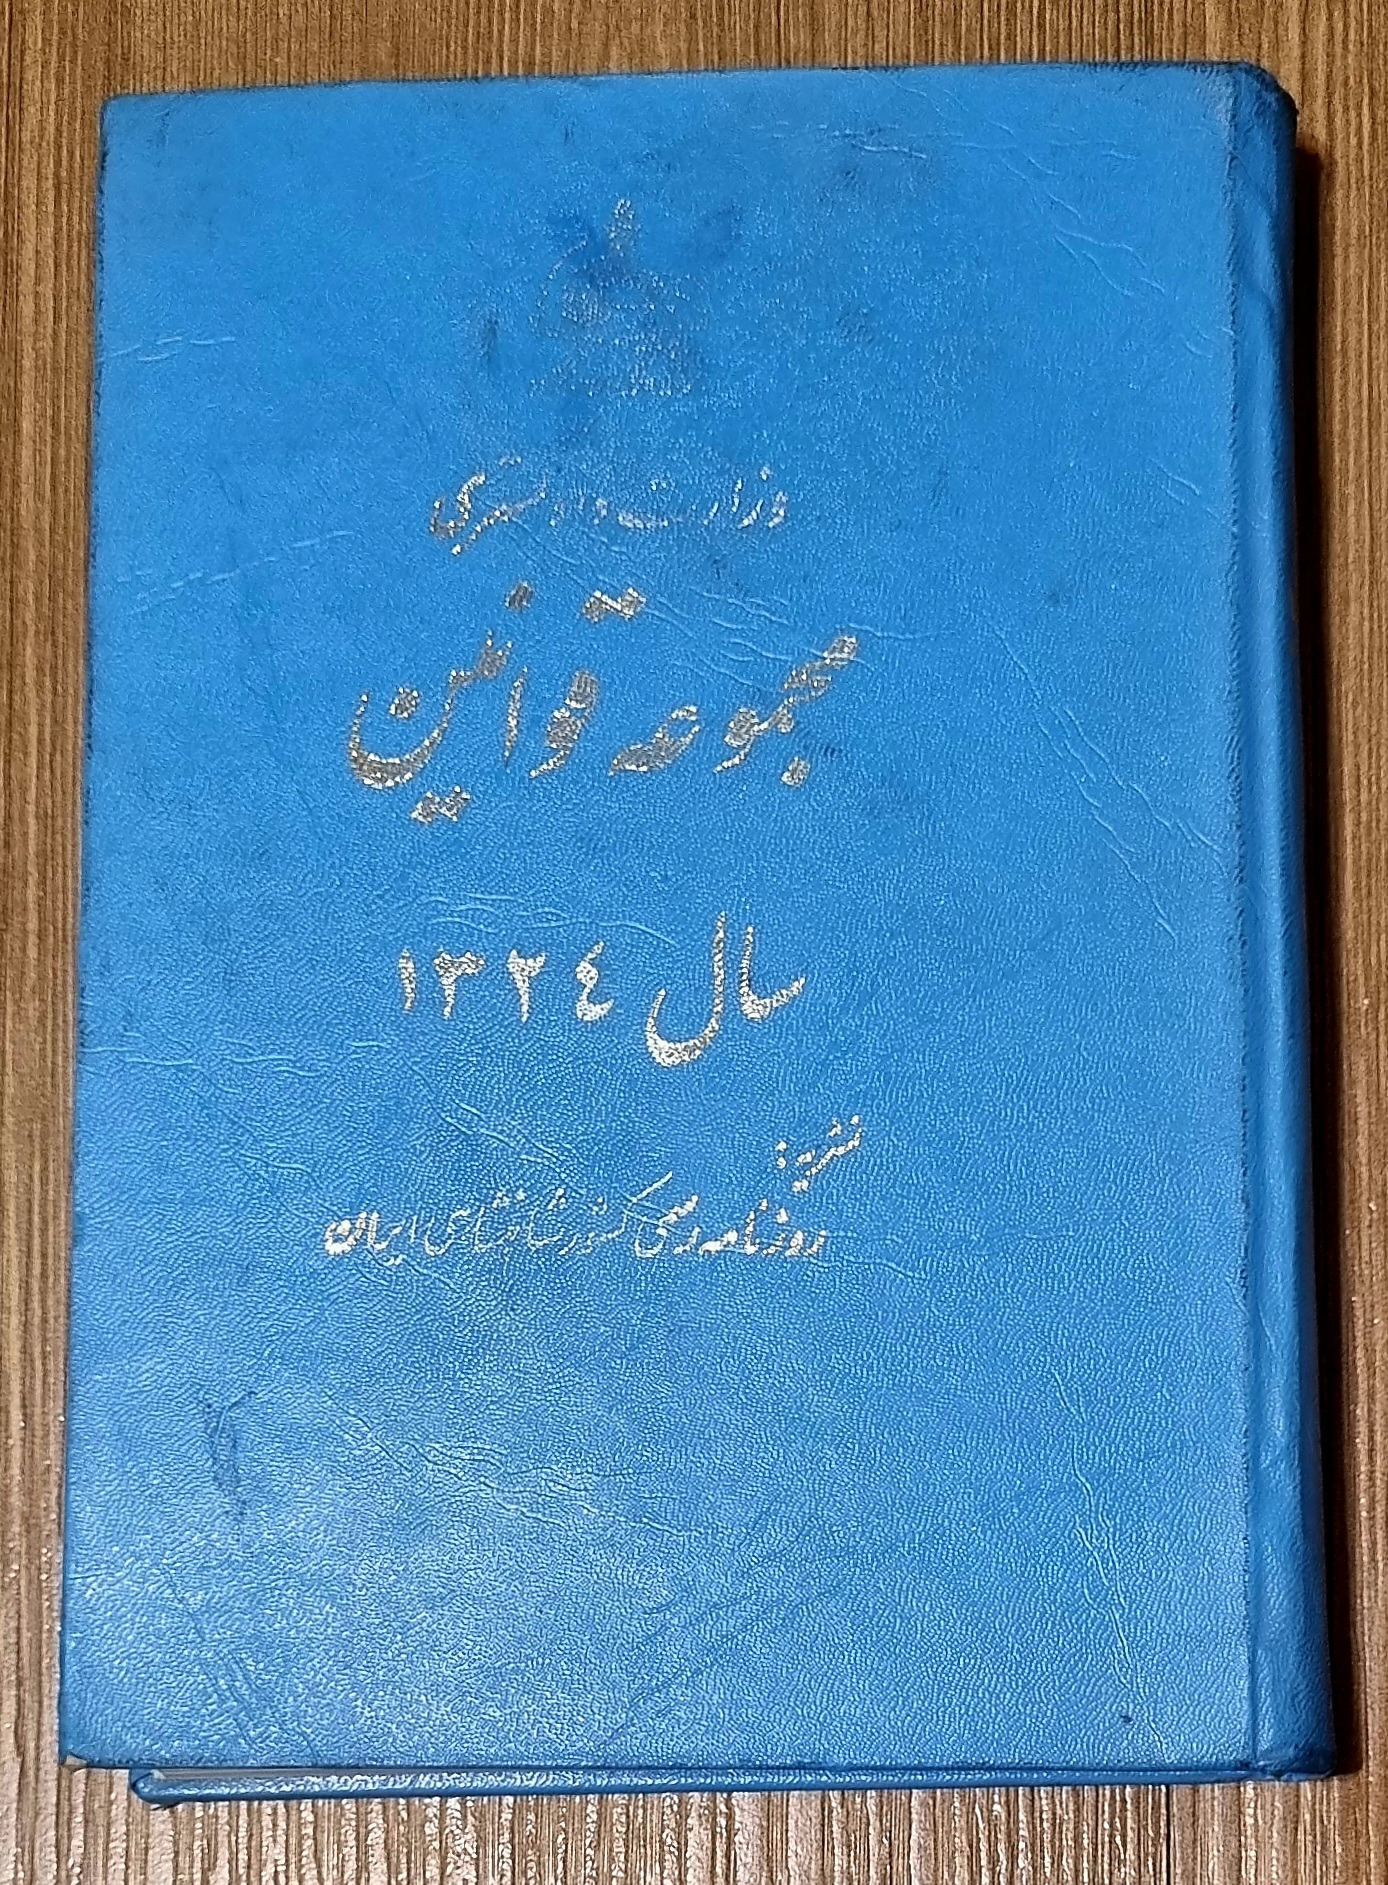 وزارت دادگستری
مجموعه قوانین
سال ١٣٢٤
نشریه:
روزنامه رسمی کشور شاهنشاهی ایران